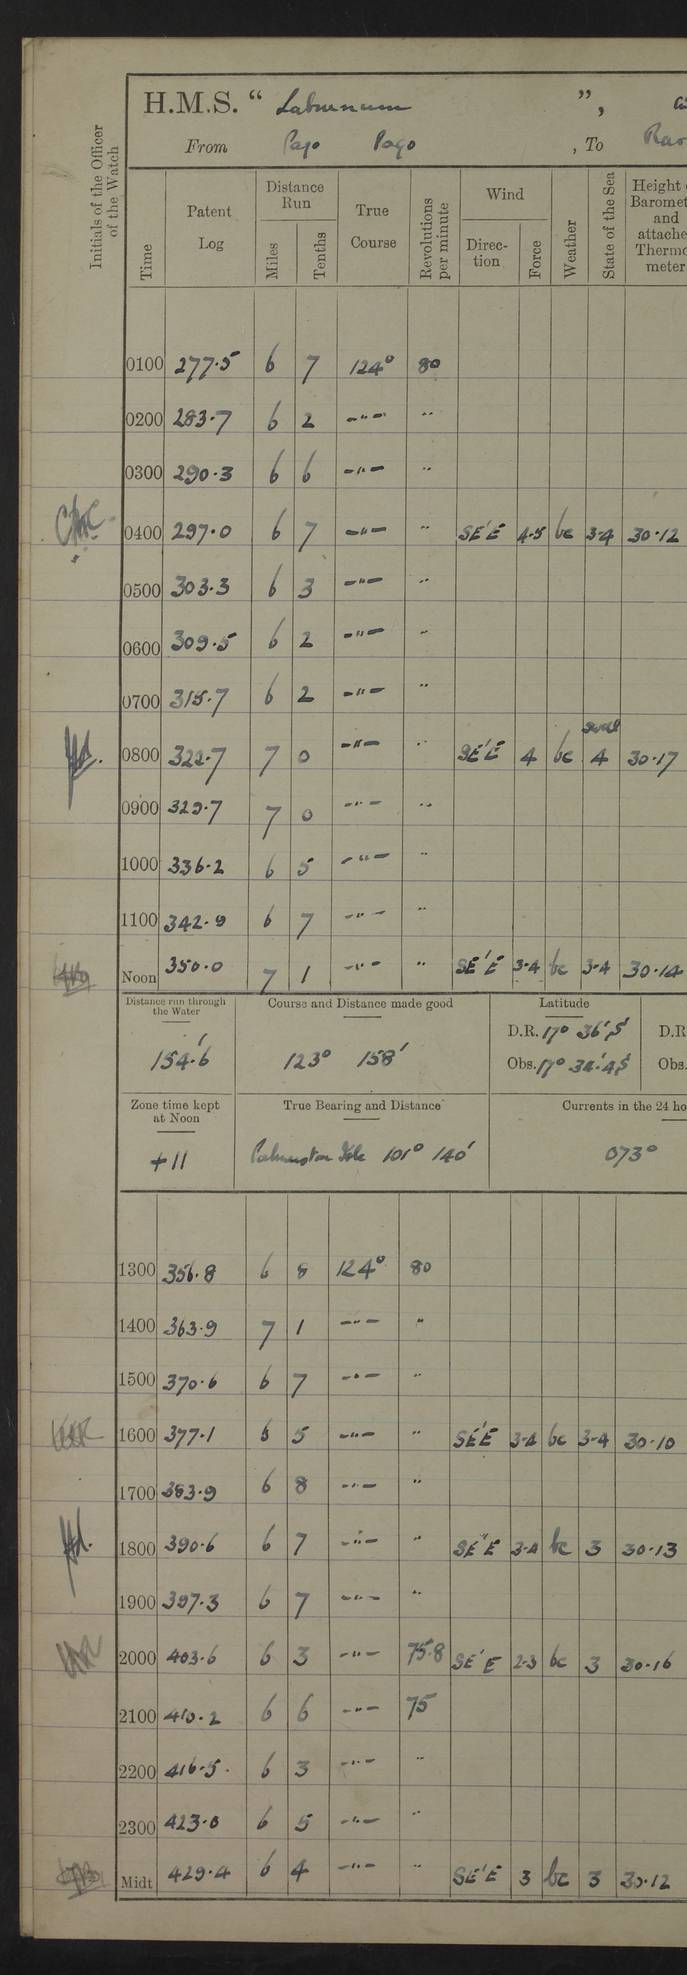 H.M.S. “ Laburnum ”,
From Pago Pago , To
Initials of the Officer of the Watch
Time
Patent Log
Distance Run
Miles
Tenths
True Course
Revolutions per minute
Wind
Direction
Force
Weather
State of the Sea
Height
Baromet
and
attache
Thermo
meter
0100 277.5 6 7 124° 80
0200 283.7 6 2 -"- "
0300 290.3 6 6 -"- "
0400 297.0 6 7 -"- " SE'E 4-5 bc 3-4 30.12
0500 303.3 6 3 -"- "
0600 309.5 6 2 -"- "
0700 315.7 6 2 -"- "
swell
0800 322.7 7 0 -"- " SE'E 4 bc 4 30.17
0900 329.7 7 0 -"- "
1000 336.2 6 5 -"- "
1100 342.9 6 7 -"- "
Noon 350.0 7 1 -"- " SE'E 3-4 bc 3-4 30.14
Distance run through the Water
154.6'
Course and Distance made good
123° 158'
Latitude
D.R. 17° 36'S D.R
Obs. 17° 34'.4S Obs.
Zone time kept at Noon
+11
True Bearing and Distance
Palmerston Isle 101° 140'
Currents in the 24 ho
073°
1300 356.8 6 8 124° 80
1400 363.9 7 1 -"- "
1500 370.6 6 7 -"- "
1600 377.1 6 5 -"- " SE'E 3-4 bc 3-4 30.10
1700 383.9 6 8 -"- "
1800 390.6 6 7 -"- " SE'E 3-4 bc 3 30.13
1900 397.3 6 7 -"- "
2000 403.6 6 3 -"- 75.8 SE'E 2-3 bc 3 30.16
2100 410.2 6 6 -"- 75
2200 416.5 6 3 -"- "
2300 423.0 6 5 -"- "
Midt 429.4 6 4 -"- " SE'E 3 bc 3 30.12